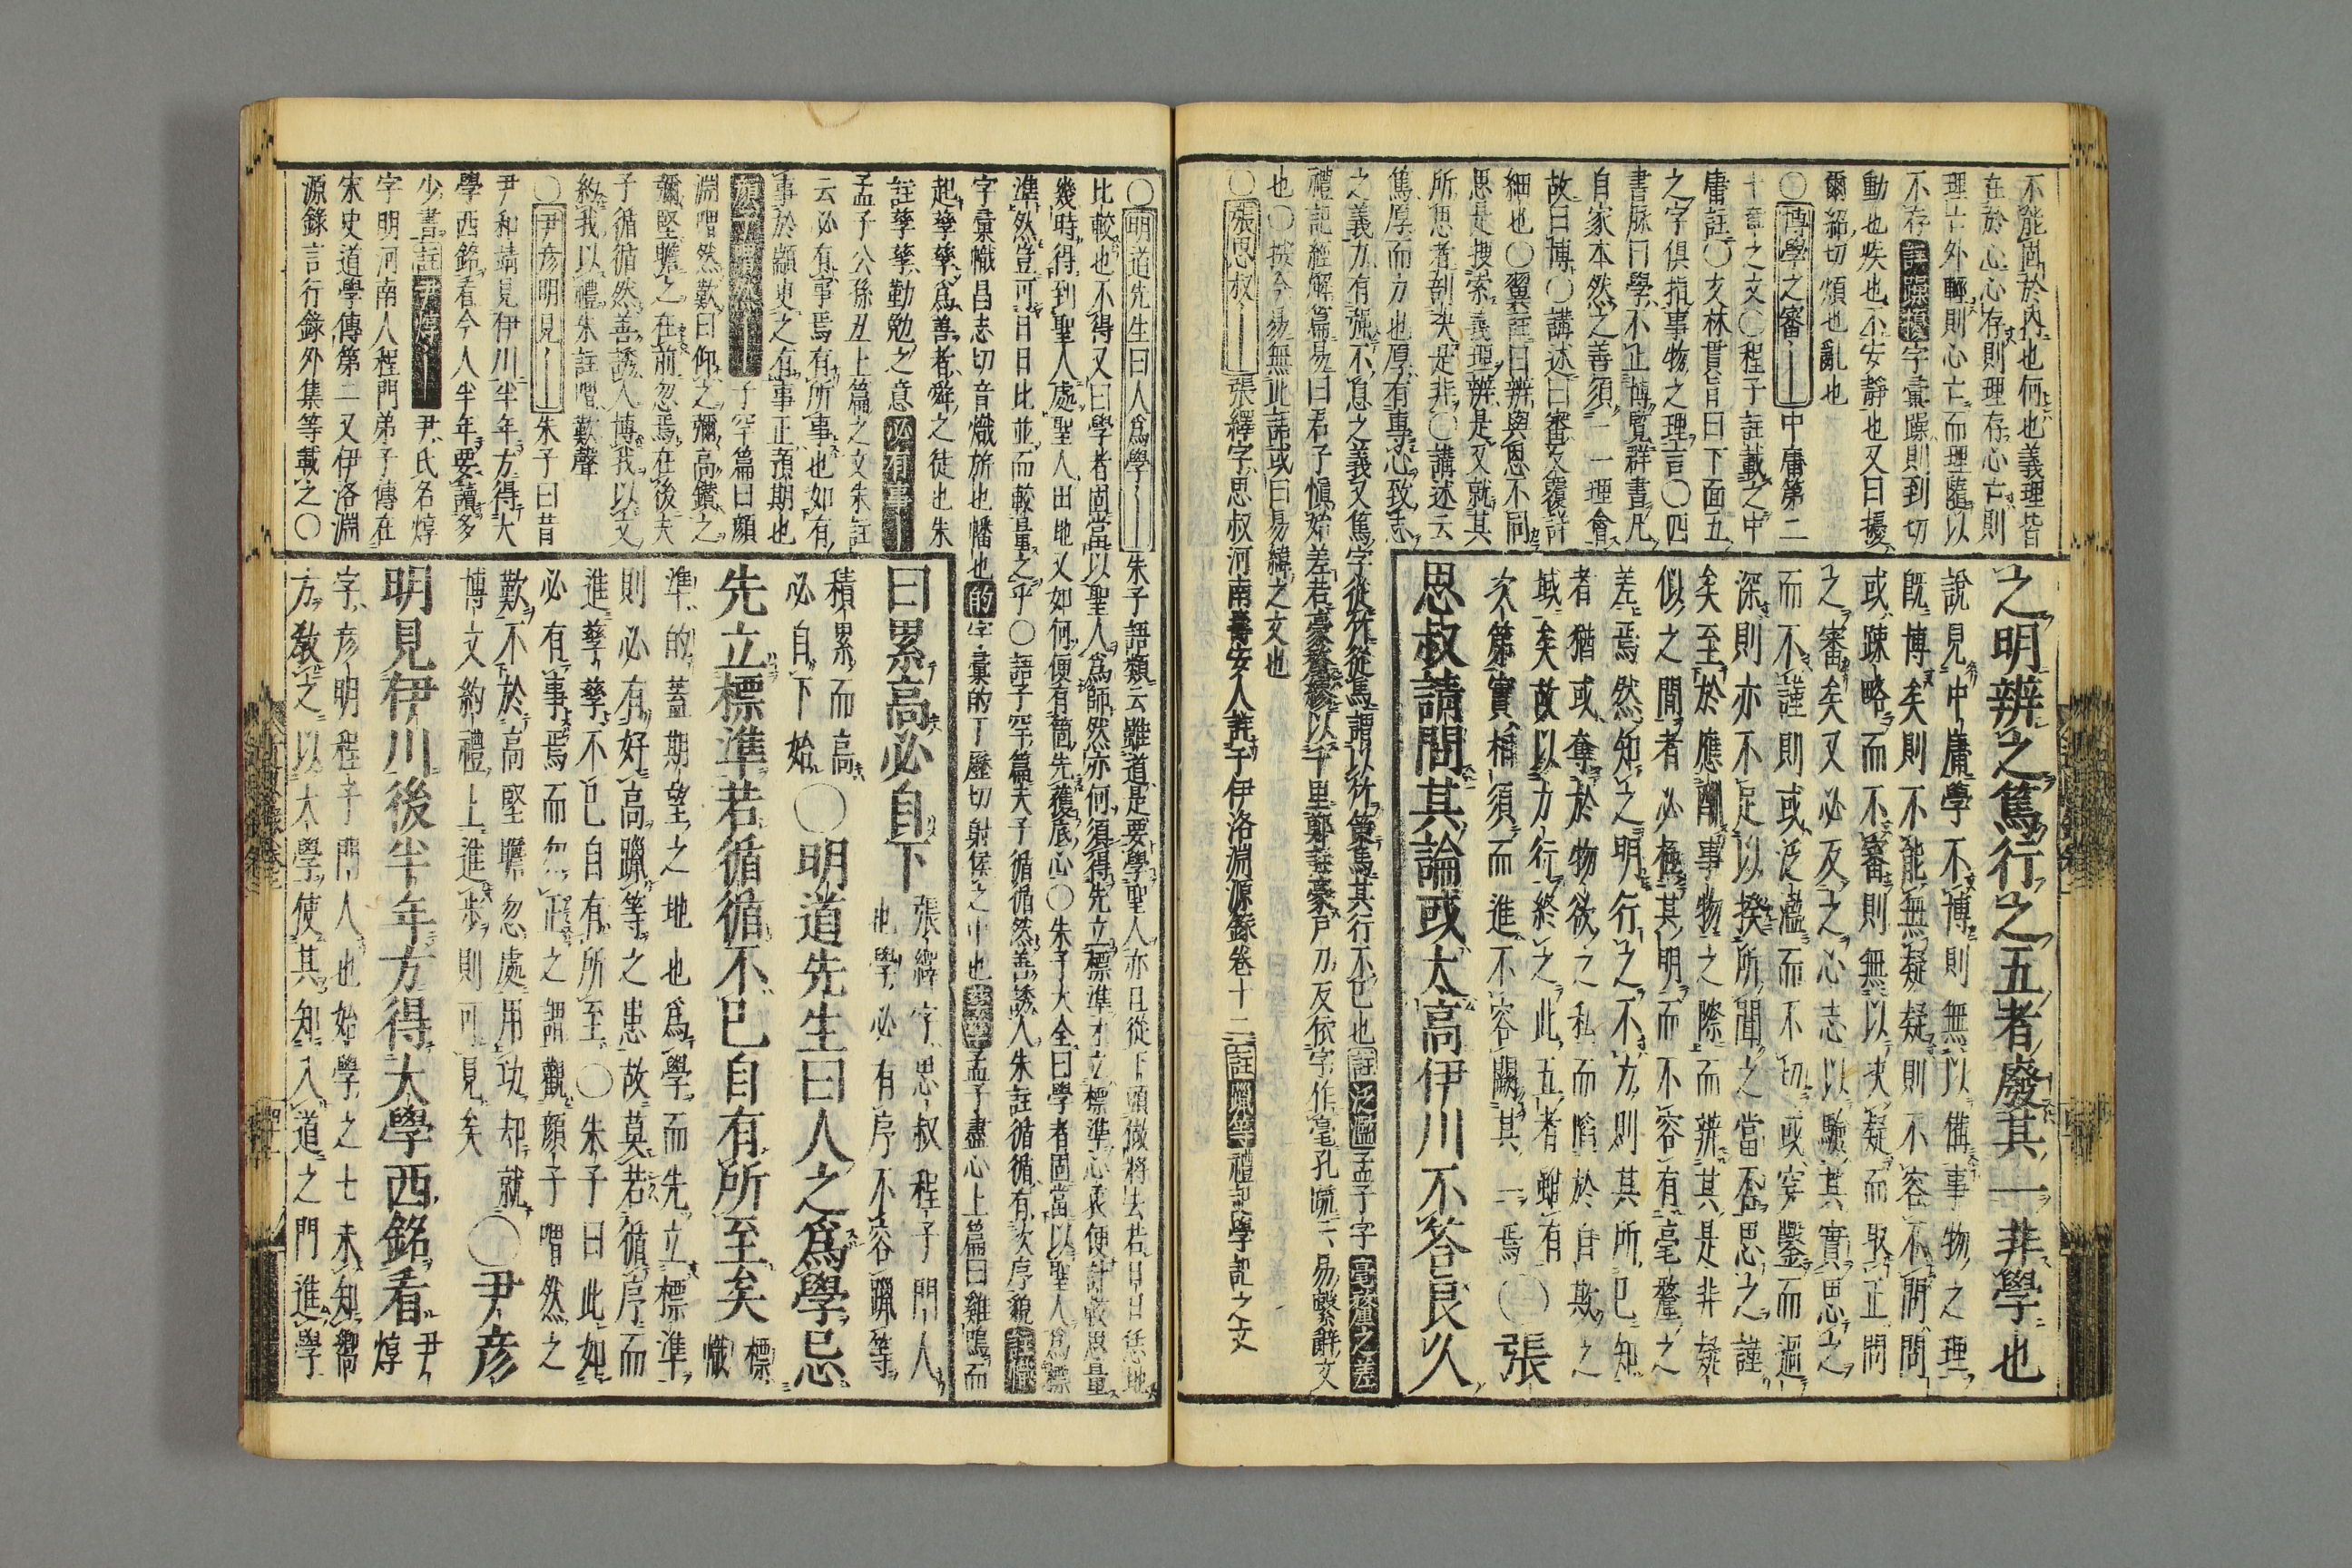 不能固於內也何也義理皆
在於心心存則理存心亡則
理亡外輕則心亡而理隨以
不存註躁擾字彙躁則到切
動也疾也不安靜也又曰擾
爾紹切煩也亂也
○博學之審 中庸第二
十章之文○程子註載之中
庸註○文林貫旨曰下面五
之字俱指事物之理言○四
書脉曰學不止博覽群書凡
自家本然之善須一一理會
故曰博○講述曰審反覆詳
細也○翼註曰辨與思不同
思是搜索義理辨是又就其
所思者剖決是非○講述云
篤厚而力也厚有專心致志
之義力有強不息之義又篤字從竹從馬謂以竹策馬其行不已也註泛濫孟子字毫釐之差
禮記經解篇易曰君子愼始差若豪釐繆以千里鄭註豪戶刀反依字作毫孔疏云易繫辭文
也○按今易無此語或曰易緯之文也
○張思叔 張繹字思叔河南壽安人許于伊洛淵源錄卷十二註躐等禮記學記之文
之明辨之篤行之五者廢其一非學也
說見中庸學不博則無以備事物之理
旣博矣則不能無疑疑則不容不問問
或踈略而不審則無以決疑而取正問
之審矣又必反之心志以驗其實思之
而不謹則或泛濫而不切或穿鑿而過
深則亦不足以揆所聞之當否思之謹
矣至於應酬事物之際而辨其是非疑
似之間者必極其明而不容有毫釐之
差焉然知之明行之不力則其所已知
者猶或奪於物欲之私而陷於自欺之
域矣故以力行終之此五者雖有
次第實相須而進不容闕其一焉○張
思叔請問其論或太高伊川不答良久
○明道先生曰人爲學 朱子語類云雖道是要學聖人亦且從下頭做將去若日日恁地
比較也不得又曰學者固當以聖人爲師然亦何須得先立標準才立標準心裏便計較思量
幾時得到聖人處聖人田地又如何便有箇先獲底心○朱子大全曰學者固當以聖人爲標
準然豈可日日比並而較量之乎○語子罕篇夫子循循然善誘人朱註循循有次序貌註幟
字彙幟昌志切音熾旂也幡也的字彙的丁歷切射侯之中也孳孳孟子盡心上篇曰雞鳴而
起孳孳爲善者舜之徒也朱
註孳孳勤勉之意必有事
孟子公孫丑上篇之文朱註
云必有事焉有所事也如有
事於顓臾之有事正預期也
顏子喟然 子罕篇曰顏
淵喟然歎曰仰之彌高鑽之
彌堅瞻之在前忽焉在後夫
子循循然善誘人博我以文
約我以禮朱註喟歎聲
○尹彥明見 朱子曰昔
尹和靖見伊川半年方得大
學西銘看今人半年要讀多
少書註尹焞 尹氏名焞
字明河南人程門弟子傳在
宋史道學傳第二又伊洛淵
源錄言行錄外集等載之○
曰累高必自下 張繹字思叔程子門人也學必有序不容躐等
積累而高
必自下始○明道先生曰人之爲學忌
先立標準若循循不已自有所至矣 標幟
準的蓋期望之地也爲學而先立標準
則必有好高躐等之患故莫若循序而
進孳孳不已自有所至○朱子曰此如
必有事焉而勿正之謂觀顏子喟然之
歎不於高堅瞻忽處用功却就
博文約禮上進步則可見矣○尹彥
明見伊川後半年方得大學西銘看 尹焞
字彥明程子門人也始學之七未知嚮
方敎之以大學使其知入道之門進學